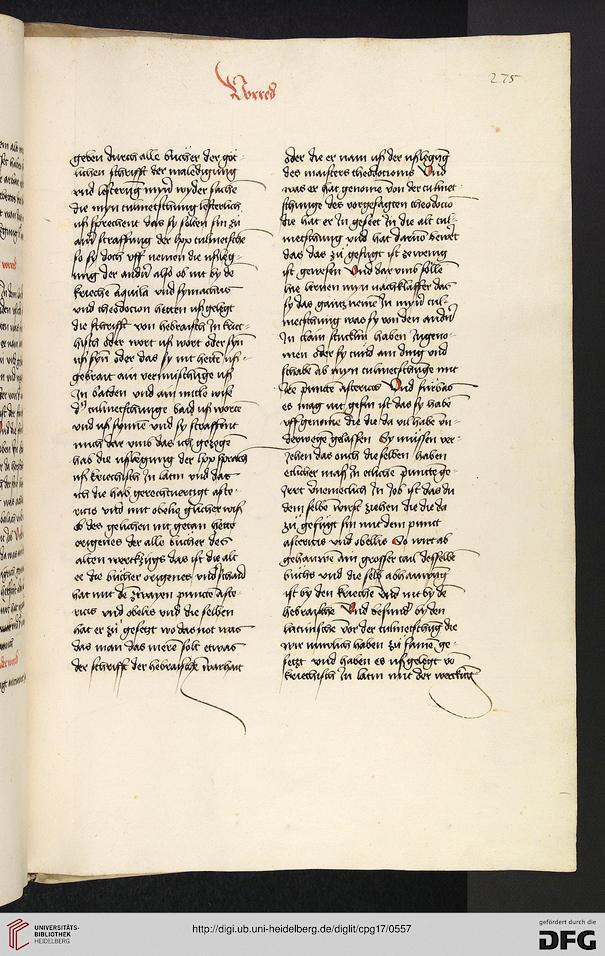 275
Vorred
geben durch alle bücher der göt-
lichen schrifft der maledigung
vnd lesterung myn wyder sache
die myn tulmetschung lesterlich
vß sprechent das sy söllen sin zů
ainer straffung der lxx tulmetsche
so sy doch vff nemen die vßleg-
ung der andern also ob nit by de
krieche aquila vnd symachus
vnd theodocion hetten vß gelegt
die schrifft von hebraisch in krie-
chisch oder wort vß wort oder syn
vß syn oder das sy nit hette vß
gebrait ain vermischunge vß
in baiden vnd ain mitle wise
tulmetschunge baid vß worte
vnd vß synne vnd sy straffent
mich dar vmb das ich gezoge
hab die vßlegung der lxx sprach
vß kriechisch in latin vnd das
ich die hab gerechtuertigt aste
ricis vnd mit obelis glicher wiß
ob des gelichen nit getan hette
origenes der alle bücher des
alten werckzügs das ist die alt
ee die bücher origenes vnderschaid
hat mit de zwayen puncte aste-
ricis vnd obelis vnd die selben
hat er zů gesetzt wo das not was
das man das mere solt etwas
der schrifft der hebraische warhait
oder die er nam vß der vßlegung
des maisters theodocionis Vnd
was er hat genome von der tulmet-
schunge des vorgesagten theodocio
die hat er in gesetzt in die alt tul-
metschung vnd hat darum bewert
das das zů gefügt ist zewenig
ist gewesen Vnd dar vmb sölle
hie lernen myn nachklaffer das
sy das gantz neme in myner tul-
metschung was sy von den andern
in clain stucklin haben ingeno-
men oder sy tund ain ding vnd
schabe ab myn tulmetschunge mit
ire puncte astericis Vnd fürbas
es mag nit gesin ist das sy habe
vffgenome die die da vil habe vn-
derwege gelassen Sy müssen ver-
iehen das ouch die selben haben
etlicher maß in etliche puncte ge-
irret vnemelich in iob ist das du
dem selbe vorß ziehen die die da
zů gefügt sin mit dem punct
astericis vnd obellis So wirt ab
gehauwe ain grosser tail desselbe
buchs vnd die selb abhauwung
ist by den krieche Vnd nit by de
hebraische Vnd besunder by den
latinische vor der tulmetschung die
wir nüwlich haben zů same ge-
setzt vnd haben es vßgelegt vo
kriechisch in latin mit der werckung
UNIVERSITÄTS-
BIBLIOTHEK
HEIDELBERG
http://digi.ub.uni-heidelberg.de/diglit/cpg17/0557
gefördert durch die
DFG